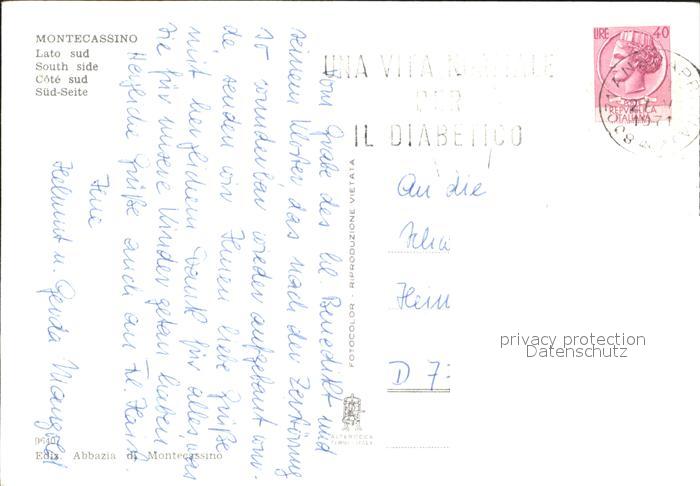 MONTECASSINO
Lato sud
South side
Côté sud
Süd-Seite
LIRE 40
REPVBBLICA
ITALIANA
UNA VITA NORMALE
PER
IL DIABETICO
1971
Vom Grabe des hl. Benedikt und
seinem Kloster, das nach der Zerstörung
so wunderbar wieder aufgebaut wur-
de, senden wir Ihnen liebe Grüße
mit herzlichem Dank für alles, was
Sie für unsere Kinder getan haben.
Herzliche Grüße auch an Frl.
Ihre
Helmut u. Gerda Mangold
FOTOCOLOR - RIPRODUZIONE VIETATA
An die
Hein
D 7
privacy protection
Datenschutz
Ediz. Abbazia di Montecassino